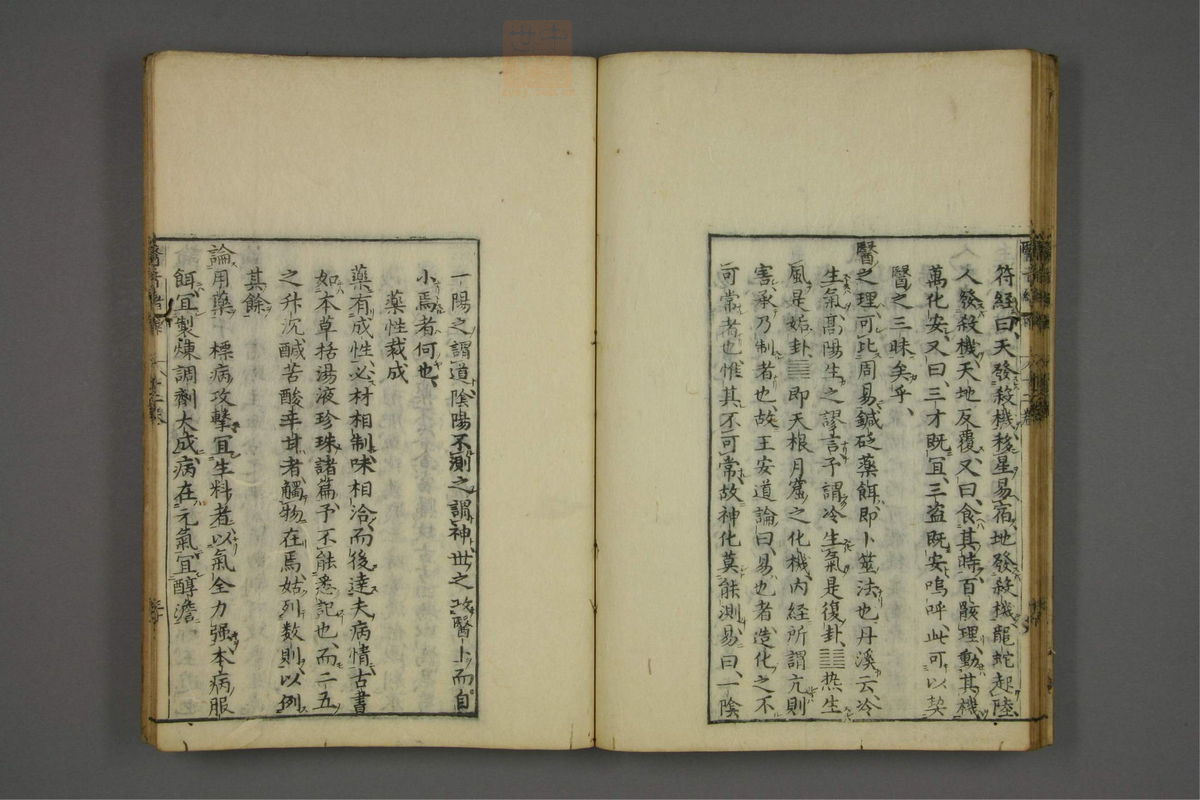 符經曰天發殺機移星易宿地發殺機龍蛇起陸
人發殺機天地反覆又曰食其時百骸理動其機
萬化安又曰三才既冝三盗既安嗚呼此可以契
醫之三昧矣乎
醫之理可比周易鍼砭藥餌即卜筮法也丹溪云冷
生氣髙陽生之謬言予謂冷生氣是復卦䷗熱生
風是姤卦䷫即天根月窟之化機内經所謂亢則
害承乃制者也故王安道論曰易也者造化之不
可常者也惟其不可常故神化莫能測易曰一陰
一陽之謂道陰陽不測之謂神世之攻醫卜而自
小焉者何也
藥性裁成
藥有成性必材相制味相洽而後達夫病情古書
如本草括湯液珍珠諸篇予不能悉記也而二五
之升沉鹹苦酸辛甘者觸物在焉姑列数則以例
其餘
論用藥 標病攻擊冝生料者以氣全力强本病服
餌冝製煉調劑大成病在元氣冝醇澹